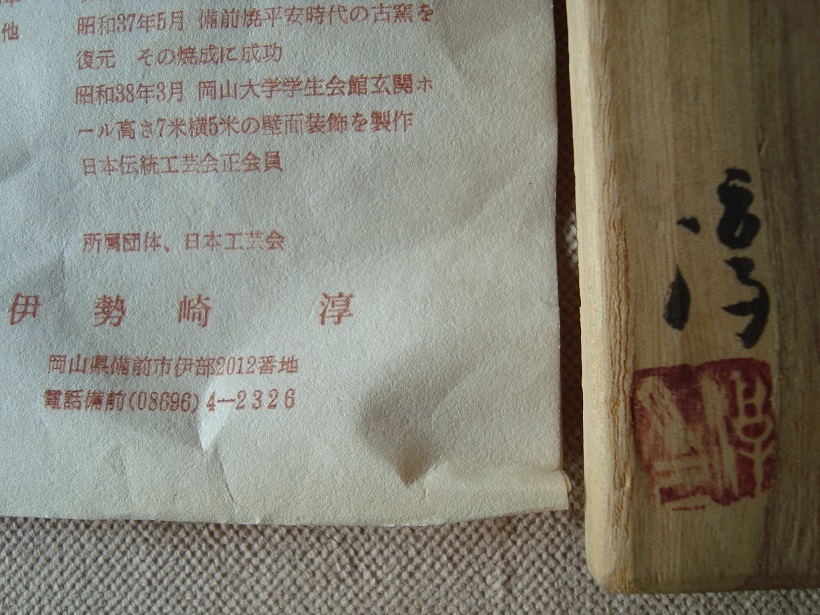 他
昭和37年5月 備前焼平安時代の古窯を
復元 その焼成に成功
昭和38年3月 岡山大学学生会館玄関ホ
ール高さ7米横5米の壁面装飾を製作
日本伝統工芸会正会員
所属団体、日本工芸会
伊勢崎 淳
岡山県備前市伊部2012番地
電話備前(08696)4-2326
淳
淳